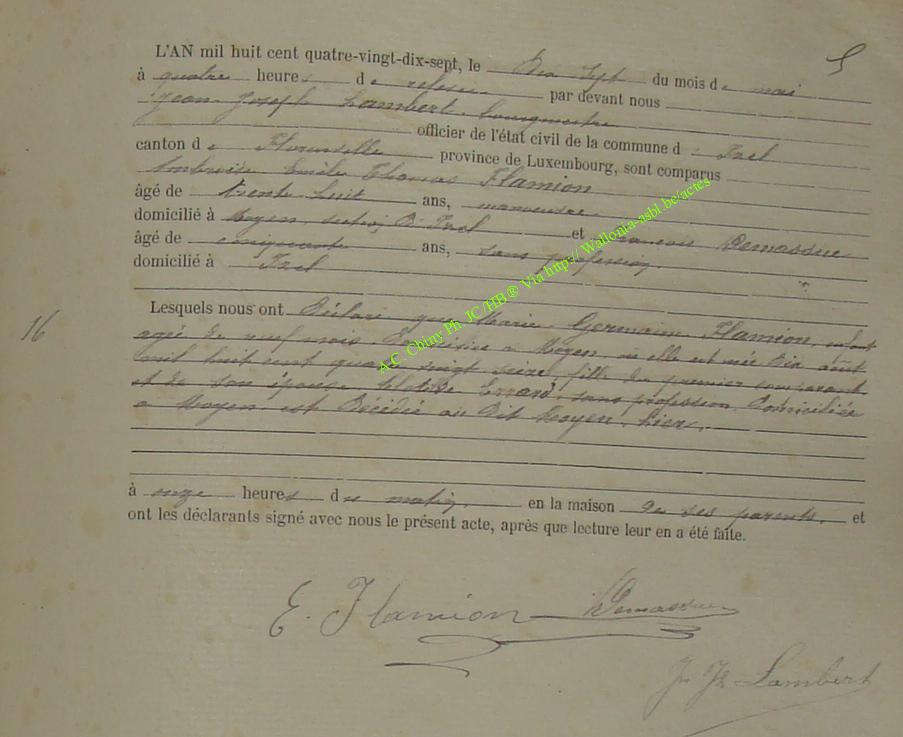 5
L'AN mil huit cent quatre-vingt-dix-sept, le Dix Sept du mois de mai
à quatre heures de relevée par devant nous
Jean Joseph Lambert, bourgmestre
officier de l'état civil de la commune d'Izel
canton de Florenville province de Luxembourg, sont comparus
Ambroise Emile Thomas Flamion
âgé de trente huit ans, manoeuvre
domicilié à Moyen, section B. Izel et François Demassue
âgé de cinquante ans, sans profession,
domicilié à Izel
16
Lesquels nous ont Déclaré que Marie Germaine Flamion, enfant
agée de neuf mois, Domiciliée à Moyen, où elle est née Dix août
mil huit cent quatre vingt seize, fille du premier comparant
et de son épouse Clotilde Errard, sans profession, Domiciliée
à Moyen, est Décédée au Dit Moyen, hier,
à onze heures du matin, en la maison de ses parents, et
ont les déclarants signé avec nous le présent acte, après que lecture leur en a été faite.
E. Flamion Demassue
J. Js. Lambert
A.C. Chiny Ph. JC/HB® Via http//Wallonia-asbl.be/actes